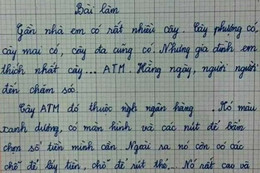 Bài làm
Gần nhà em có rất nhiều cây. Cây phượng có,
cây mai có, cây đa cũng có. Nhưng gia đình em
thích nhất cây... ATM. Hàng ngày, người người
đến chăm sóc.
Cây ATM đó thuộc ngân hàng ...... Nó màu
xanh dương, có màn hình và các nút để bấm
chọn số tiền mình cần. Ngoài ra nó còn có các
chỗ để lấy tiền, chỗ để rút thẻ,... Nó rất cao và